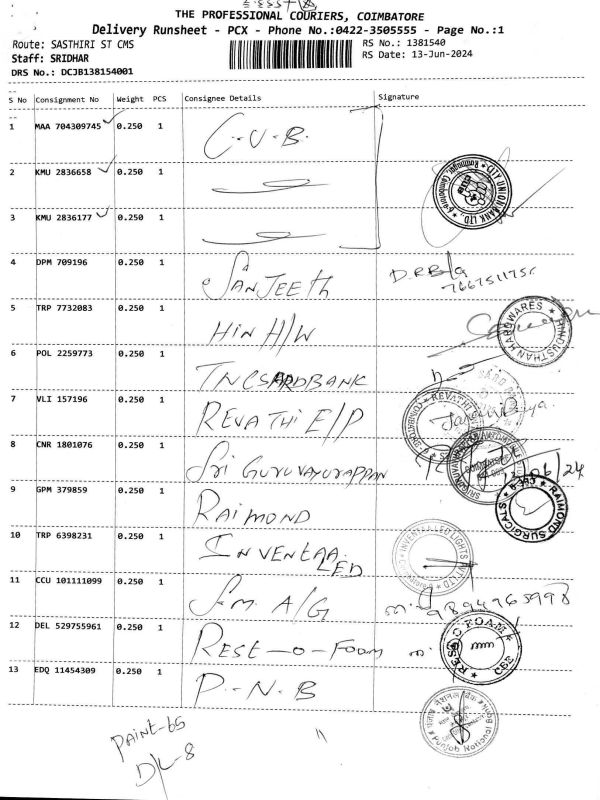 THE PROFESSIONAL COURIERS, COIMBATORE
Delivery Runsheet - PCX - Phone No.:0422-3505555 - Page No.:1
Route: SASTHIRI ST CMS RS No.: 1381540
Staff: SRIDHAR RS Date: 13-Jun-2024
DRS No.: DCJB138154001
S No Consignment No Weight PCS Consignee Details Signature
1 MAA 704309745 0.250 1 C-U-B.
2 KMU 2836658 0.250 1 CITY UNION BANK LTD.
3 KMU 2836177 0.250 1
4 DPM 709196 0.250 1 SANJEETH
5 TRP 7732083 0.250 1 HIN H/W HINDUSTHAN HARDWARES
6 POL 2259773 0.250 1 TNCSARDBANK
7 VLI 157196 0.250 1 REVATHI E/P REVATHI
8 CNR 1801076 0.250 1 Sri GURUVAYURAPPAN
9 GPM 379859 0.250 1 RAIMOND RAIMOND SURGICALS
10 TRP 6398231 0.250 1 INVENTAA LED INVENTAA LED LIGHTS PVT LTD
11 CCU 101111099 0.250 1 S.M. A/G 9894763998
12 DEL 529755961 0.250 1 REST-O-FOAM
13 EDQ 11454309 0.250 1 P.-N.B Punjab National Bank
PAINT-65
D/L-8